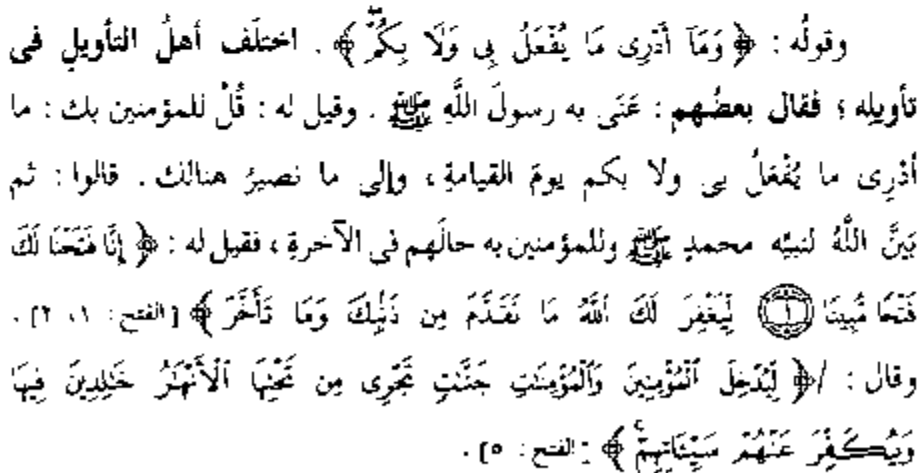 وقولُه : ﴿ وَمَآ أَدْرِى مَا يُفْعَلُ بِى وَلَا بِكُمْ ﴾ . اختلَف أهلُ التأويلِ فى
تأويلِه ؛ فقال بعضُهم : عَنَى به رسولَ اللَّهِ ﷺ . وقيل له : قُلْ للمؤمنين بك : ما
أَدْرِى ما يُفْعَلُ بى ولا بكم يومَ القيامةِ ، وإلى ما نصيرُ هنالك . قالوا : ثم
بَيَّنَ اللَّهُ لنبيِّه محمدٍ ﷺ وللمؤمنين به حالَهم فى الآخرةِ ، فقيل له : ﴿ إِنَّا فَتَحْنَا لَكَ
فَتْحًا مُّبِينًا ۝١ لِّيَغْفِرَ لَكَ ٱللَّهُ مَا تَقَدَّمَ مِن ذَنۢبِكَ وَمَا تَأَخَّرَ ﴾ [الفتح: ١، ٢] .
وقال : /﴿ لِّيُدْخِلَ ٱلْمُؤْمِنِينَ وَٱلْمُؤْمِنَٰتِ جَنَّٰتٍ تَجْرِى مِن تَحْتِهَا ٱلْأَنْهَٰرُ خَٰلِدِينَ فِيهَا
وَيُكَفِّرَ عَنْهُمْ سَيِّـَٔاتِهِمْۚ ﴾ [الفتح: ٥] .